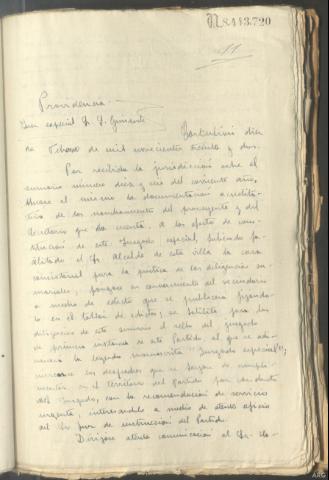 N.8.443.720
11
Providencia
Juez especial Sr. J.
de mil novecientos treinta y dos.
Por recibida la jurisdicción sobre el
sumario número doce y seis del corriente año,
la documentación acredita-
tiva de los nombramientos del proveyente y del
Secretario que da cuenta. A los efectos de cons-
titución de este Juzgado especial, habiendo fa-
cilitado el Sr. Alcalde de esta villa la casa
consistorial para la práctica de las diligencias su-
mariales; póngase en conocimiento del vecindario
a medio de edicto que se publicará fijando-
lo en el tablón de edictos; se habilita para las
diligencias de este sumario el sello del juzgado
de primera instancia de este Partido, al que se adi-
cionará la leyenda manuscrita "Juzgado especial";
los despachos que se hayan de cumpli-
mentar en el territorio del Partido por conducto
del Juzgado, con la recomendación de servicio
urgente, interesándolo a medio de atento oficio
del Sr. Juez de instrucción del Partido.
Diríjase atenta comunicación al Sr.
ARG